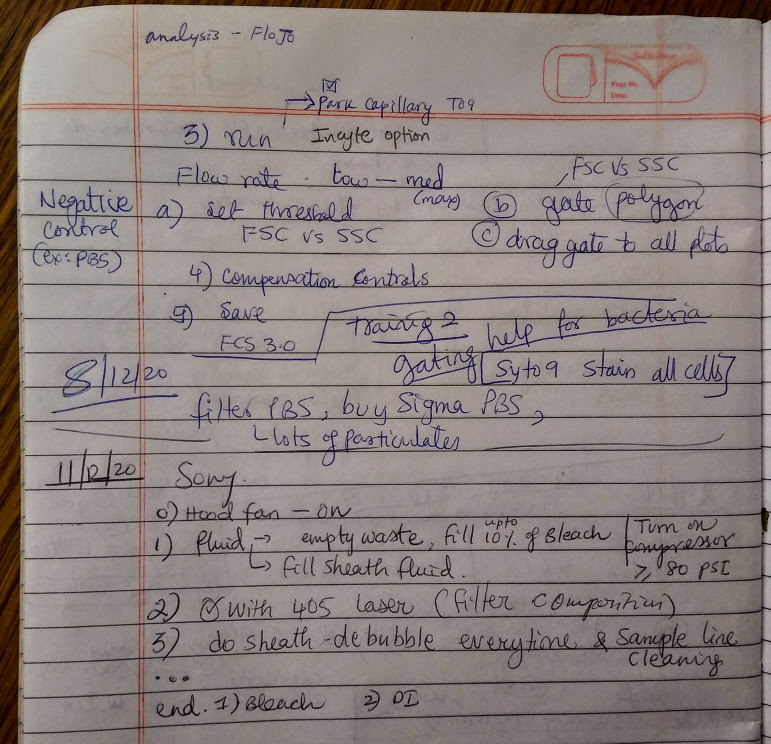 analysis - FloJo
Page No.
Date:
☑
→ Park Capillary
3) run Incyte option
Flow rate - low - med
(max)
Negative
control
(ex: PBS)
a) set threshold
FSC vs SSC
FSC vs SSC
b) gate polygon
c) drag gate to all plots
4) Compensation Controls
5) Save
FCS 3.0
Training 2
gating help for bacteria
[Syto9 stain all cells]
8/12/20
filter PBS, buy Sigma PBS,
lots of particulates
11/12/20 Sony.
0) Hood fan - on
1) fluid, → empty waste, fill upto 10% of Bleach
↳ fill sheath fluid.
Turn on
compressor
≥ 80 PSI
2) with 405 laser (filter
3) do sheath-debubble everytime & Sample line
cleaning
...
end. 1) Bleach 2) DI